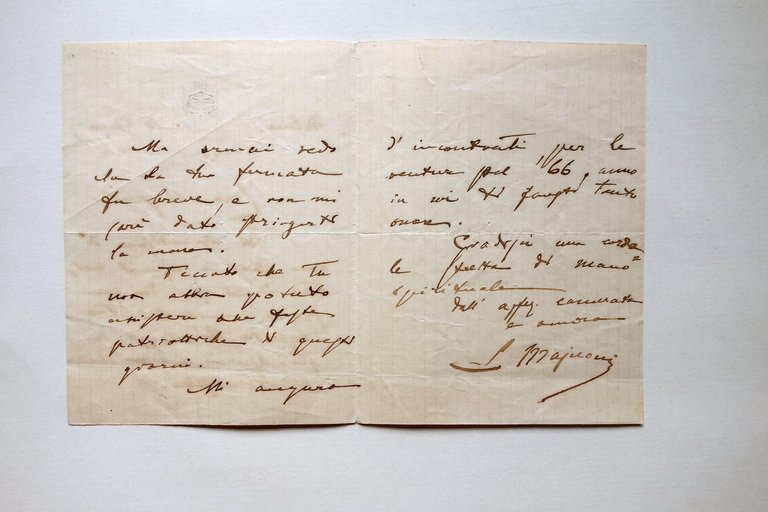 Ma oramai vedo
che la tua fermata
fu breve, e non mi
sarà dato stringerti
la mano.
Peccato che Tu
non abbia potuto
assistere alle feste
patriottiche di questi
giorni.
Mi auguro
d'incontrarti per le
venture pel '66, anno
in cui ti facesti tanto
onore.
Gradisci una cordia
le stretta di mano
spirituale
dall' affez. camerata
e amico
L Majnoni